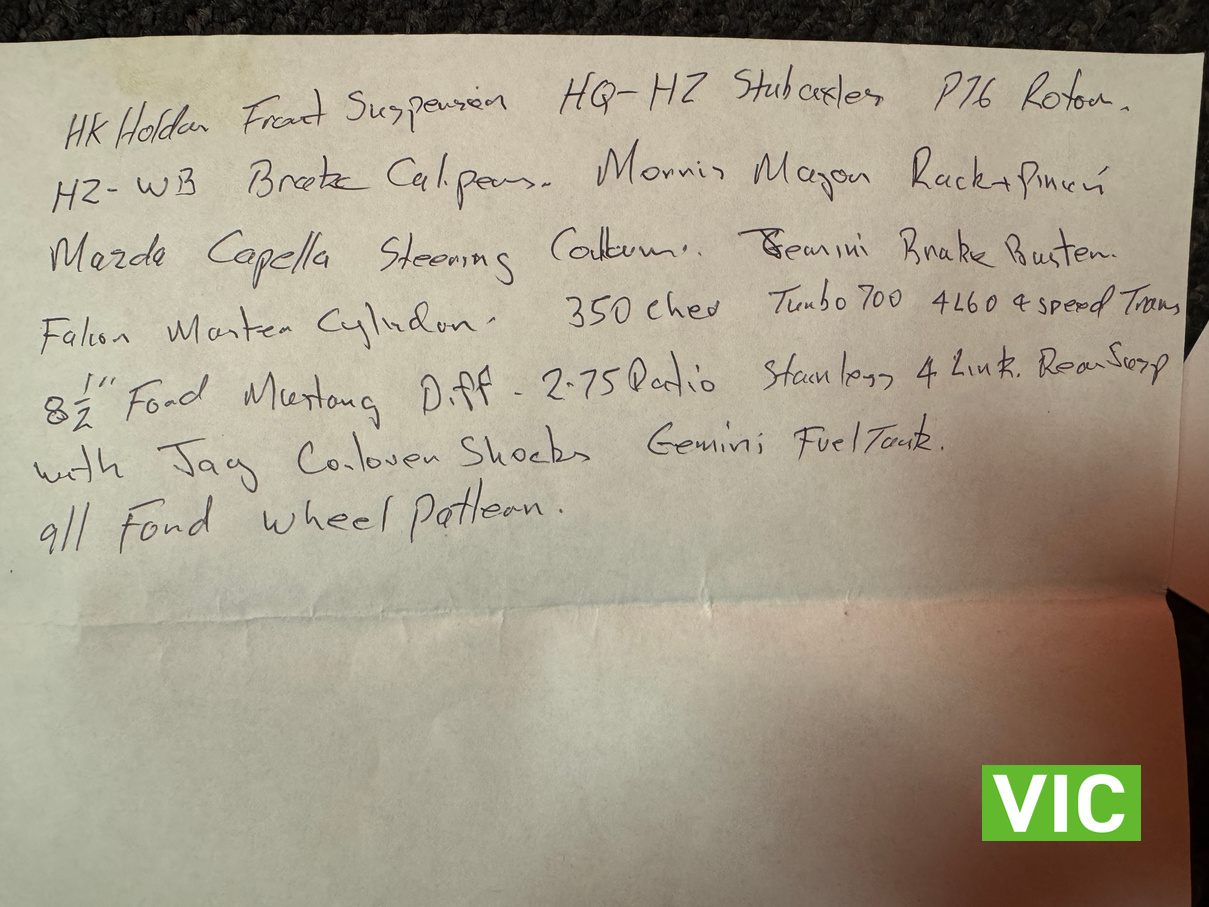 HK Holden Front Suspension HQ-HZ Stubaxles P76 Rotors.
HZ-WB Brake Calipers. Morris Major Rack + Pinion
Mazda Capella Steering Collum. Gemini Brake Buster.
Falcon Master Cylinder. 350 Chev Turbo 700 4L60 4 speed Trans
8 1/2" Ford Mustang Diff - 2.75 Ratio Stainless 4 Link. Rear Susp
with Jag Coilover Shocks Gemini Fuel Tank.
all Ford wheel Pattern.
VIC